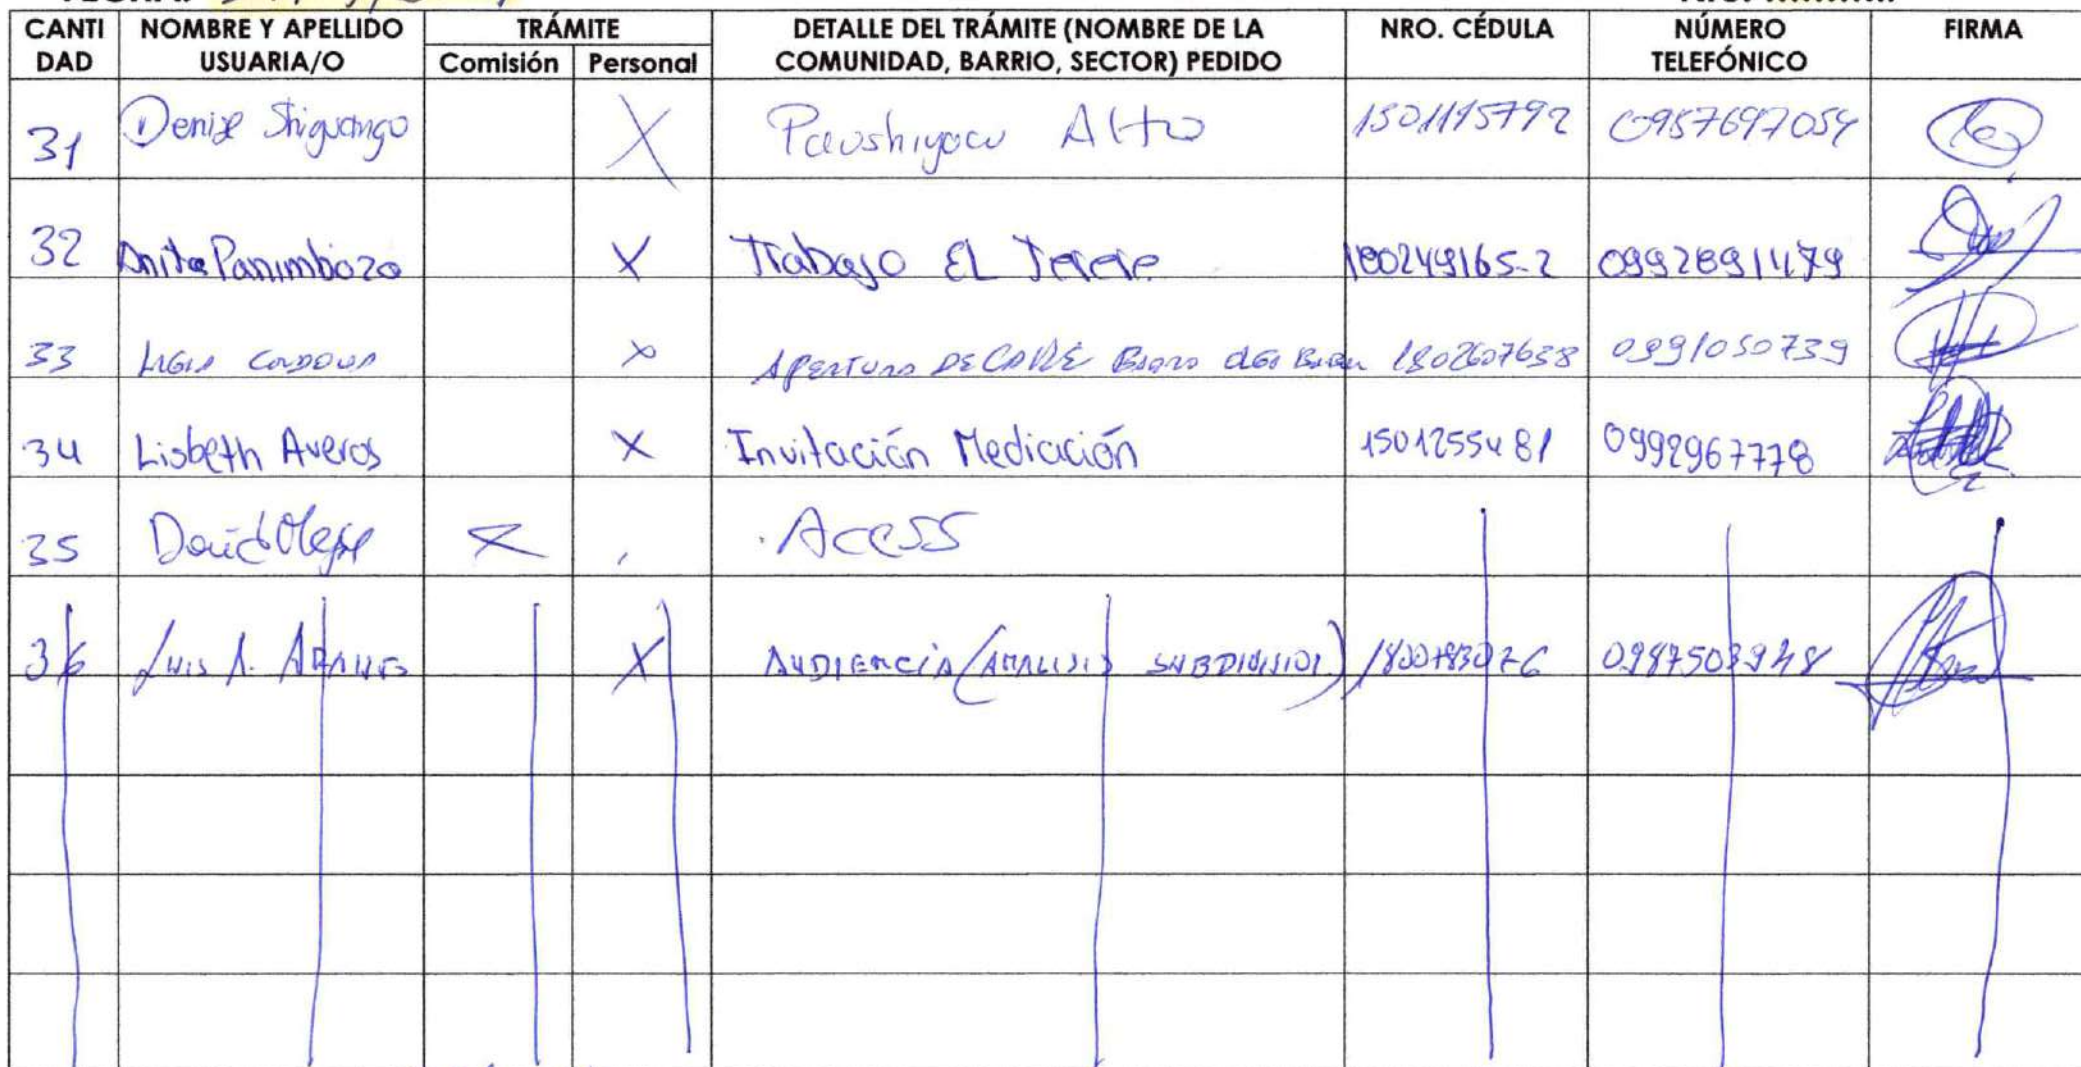 CANTI DAD NOMBRE Y APELLIDO USUARIA/O TRÁMITE Comisión Personal DETALLE DEL TRÁMITE (NOMBRE DE LA COMUNIDAD, BARRIO, SECTOR) PEDIDO NRO. CÉDULA NÚMERO TELEFÓNICO FIRMA
31 Denise Shiguango X Paushiyacu Alto 1501115792 0987697054
32 Anita Panimboza X Trabajo EL Terere 180249165-2 0992891479
33 X APERTURA DE CALLE 1802607638 0991050739
34 Lisbeth Averos X Invitación Mediación 1501255481 0992967778
35 David Acess
36 LUIS A. X AUDIENCIA (ANALISIS SUBDIVISION) 0987503948